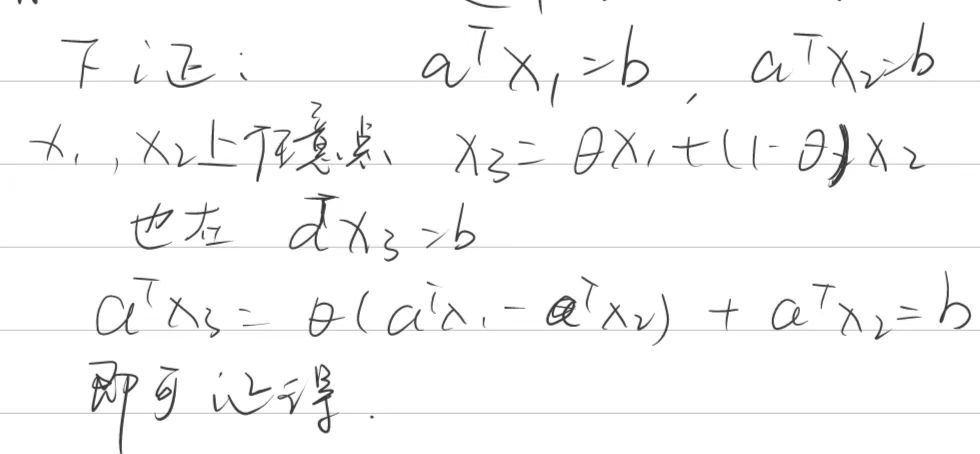 下证: aᵀx₁=b, aᵀx₂=b
x₁, x₂上任意点 x₃=θx₁+(1-θ)x₂
也在 aᵀx₃=b
aᵀx₃=θ(aᵀx₁-aᵀx₂)+aᵀx₂=b
即可证得.